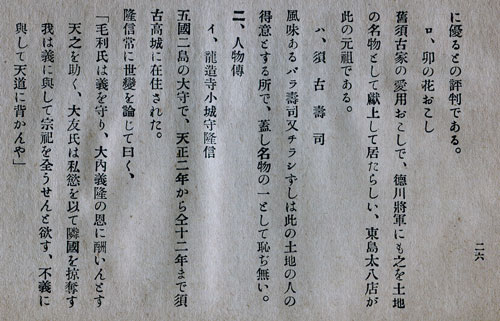 に優るとの評判である。
ロ、卯の花おこし
舊須古家の愛用おこしで、德川將軍にも之を土地
の名物として獻上して居たらしい、東島太八店が
此の元祖である。
ハ、須古壽司
風味あるバラ壽司又チラシずしは此の土地の人の
得意とする所で、蓋し名物の一として恥ぢ無い。
二、人物傳
イ、龍造寺小城守隆信
五國二島の大守で、天正二年から仝十二年まで須
古高城に在住された。
隆信常に世變を論じて曰く、
「毛利氏は義を守り、大內義隆の恩に酬いんとす
天之を助く、大友氏は私慾を以て隣國を掠奪す
我は義に與して宗祀を全うせんと欲す、不義に
與して天道に背かんや」
二六